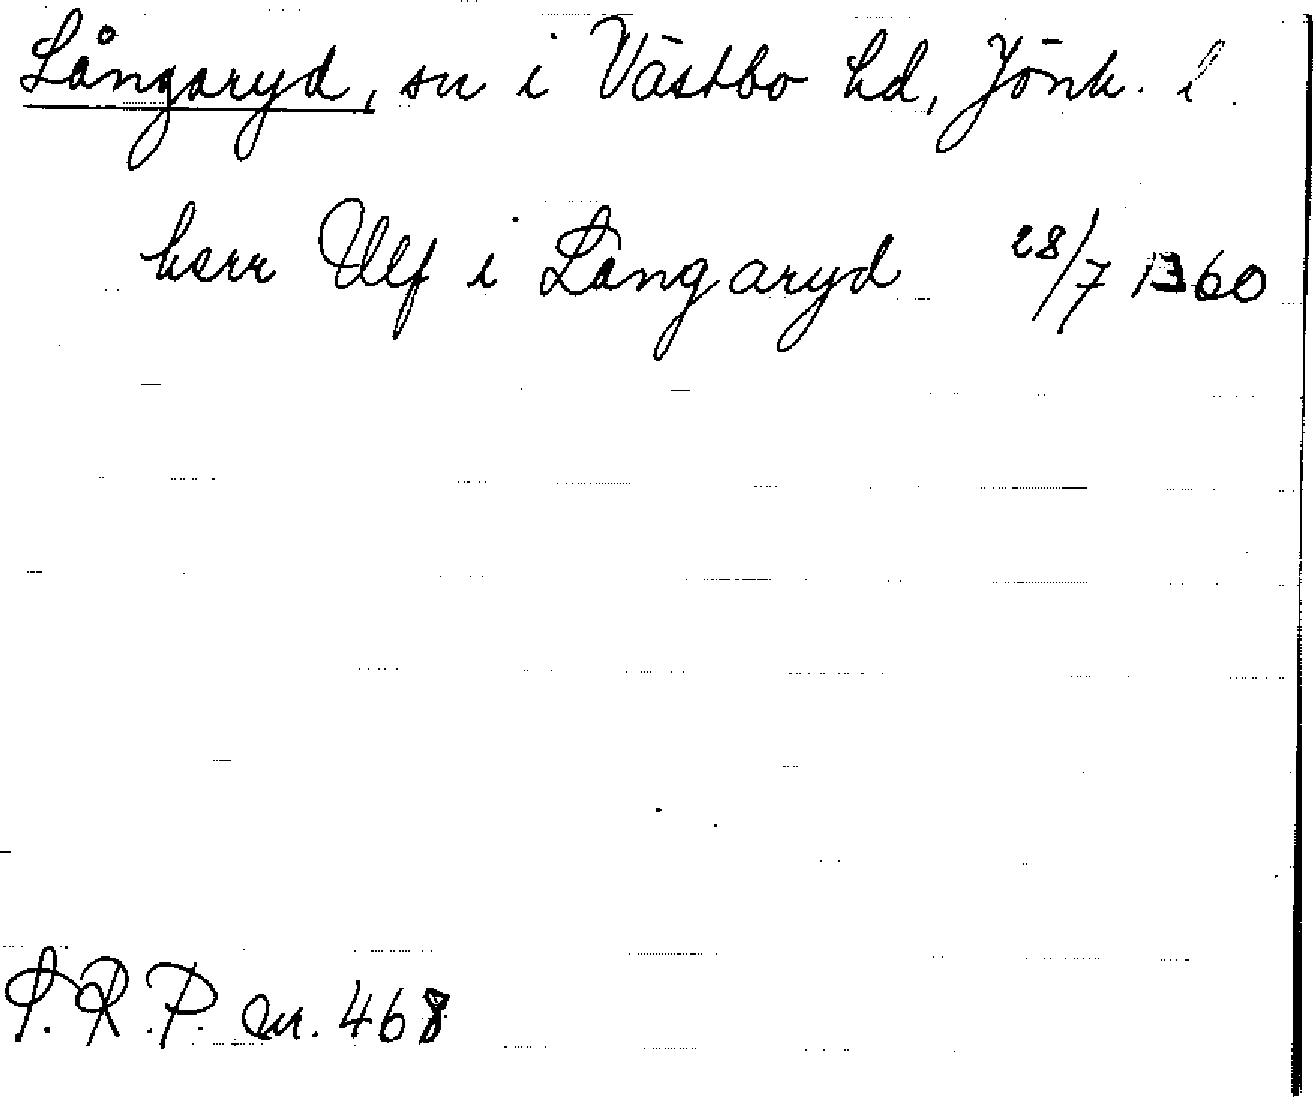 Långaryd, sn i Västbo hd, Jönk. l.
herr Ulf i Langaryd 28/7 1360
S.R.P. nr. 468